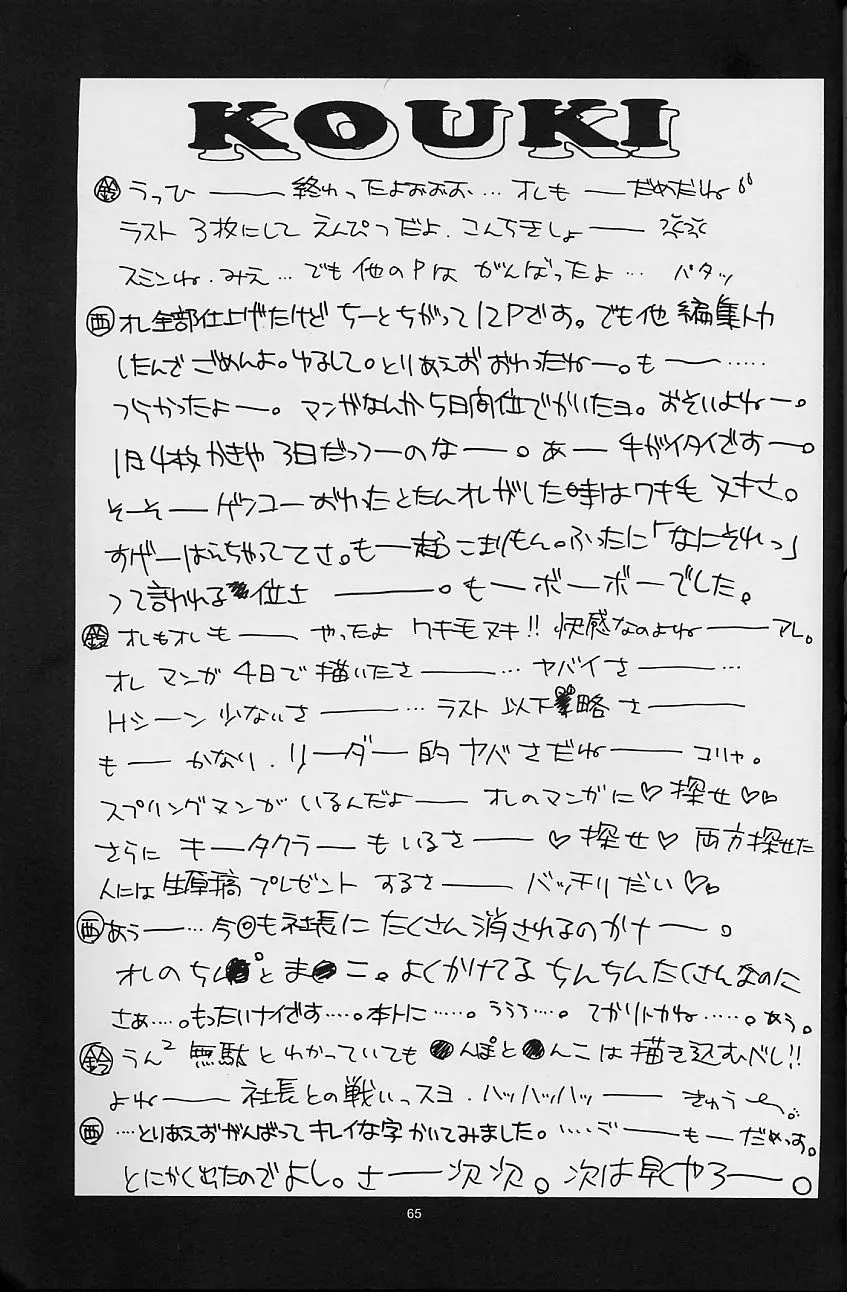 KOUKI
鈴 うっひ――終わったよおおお…オレも―だめだね
ラスト3枚にして えんぴつだよ.こんちきしょ――
スミンね.みえ…でも他のPは がんばったよ… パタッ
西 オレ全部仕上げたけど ちーとちがって12Pです。でも他 編集トカ
したんで ごめんよ。ゆるして。とりあえずおわったねー。も――……
つらかったよー。マンガなんか5日間位でかいたヨ。おそいよねー。
1月4枚かきや 3日だっつーのなー。あー 手がイタイですー。
そーそー ゲンコーおわったとたんオレがした時はワキ毛 ヌキさ。
すげーはえちゃっててさ。もー超こまりもん。ふったに「なにそれっ」
って言われる位さ ――。もーボーボーでした。
鈴 オレもオレも―― やったよ ワキモヌキ!! 快感なのよね――アレ。
オレ マンガ 4日で描いたさ――… ヤバイさ――…
Hシーン 少ないさ――… ラスト 以下略 さ――
も― かなり.リーダー的ヤバさだね―― コリャ。
スプリングマンが いるんだよ―― オレのマンガに♡探せ♡♡
さらに キータクラーも いるさ――♡探せ♡ 両方探せた
人には 生原稿 プレゼント するさ―― バッチリだい♡♡
西 あぅー…今回も社長に たくさん消されるのかナー。
オレの ちん●と ま●こ。よくかけてる ちんちんたくさんなのに
さぁ…。もったいナイです…。本トに……。ううう…。てかりトカね……。あぅ。
鈴 うん² 無駄とわかっていても ●んぽと●んこは描き込むべし!!
よね―― 社長との戦いっスヨ.ハッハッハッ―― きゅう〜。
西 …とりあえずがんばってキレイな字かいてみました。…ごー もーだめっす。
とにかく出たのでよし。さ――次次。次は早くやろ――。
65